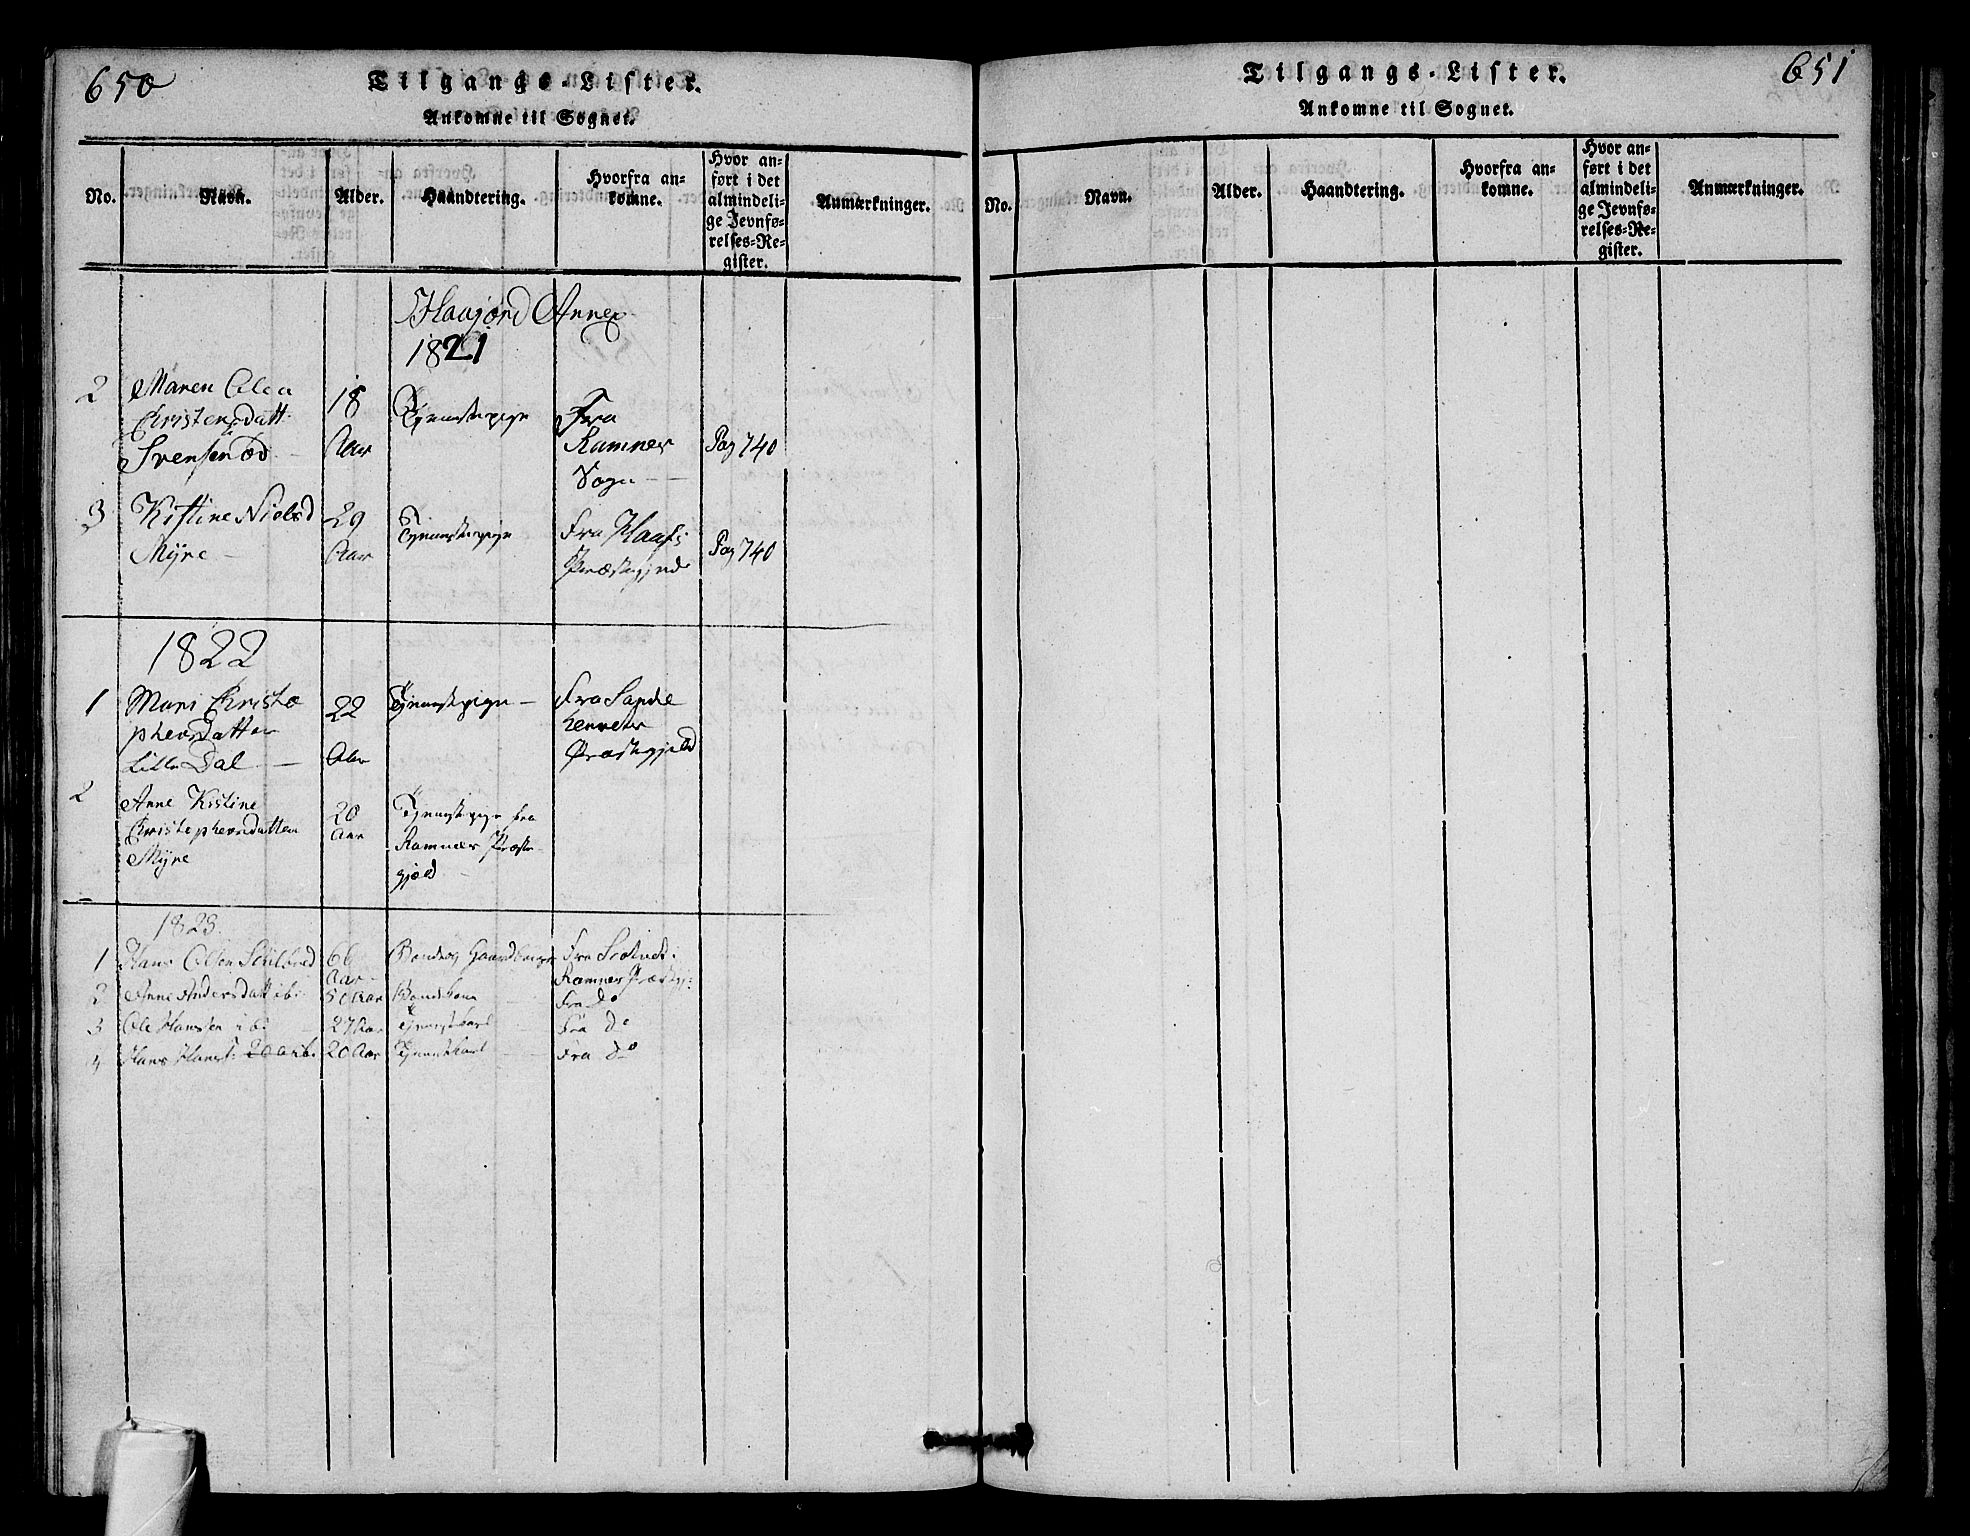 650
Tilgangs-Lister.
Ankomne til Sognet.
No.
Navn.
Alder.
Haandtering.
Hvorfra an-
komne.
Hvor an-
ført i det
almindeli-
ge Jevnfø-
relses-Re-
gister.
Anmærkninger.
Annex
1821
2
Maren Olea
Christensdatt.
Svensenød
18
Aar
Tjenestepige
Fra
Ramnes
Sogn
Pag 740
3
Kistine Nielsd
Myre
29
Aar
Tjenestepige
Fra Haafs
Præstegjeld
Pag 740
1822
1
Mari Christo
phersdatter
Lille Dal
22
Aar
Tjenestepige
Fra Sande
Præstegjeld
2
Anne Kistine
Christophersdatter
Myre
20
Aar
Tjenestepige fra
Ramnæs Præste
gjæld
1823.
1
Hans Olsen
66
Aar
Fra
Ramnes Præstegj:
2
Anne Andersdatt ib:
50 Aar
Bondekone
Fra do
3
Ole Hanssen ib:
27 Aar
Tjenestekarl
Fra do
4
Hans Hanss: 20 a ib.
20 Aar
Tjenestekarl
Fra do
651
Tilgangs-Lister.
Ankomne til Sognet.
No.
Navn.
Alder.
Haandtering.
Hvorfra an-
komne.
Hvor an-
ført i det
almindeli-
ge Jevnfø-
relses-Re-
gister.
Anmærkninger.